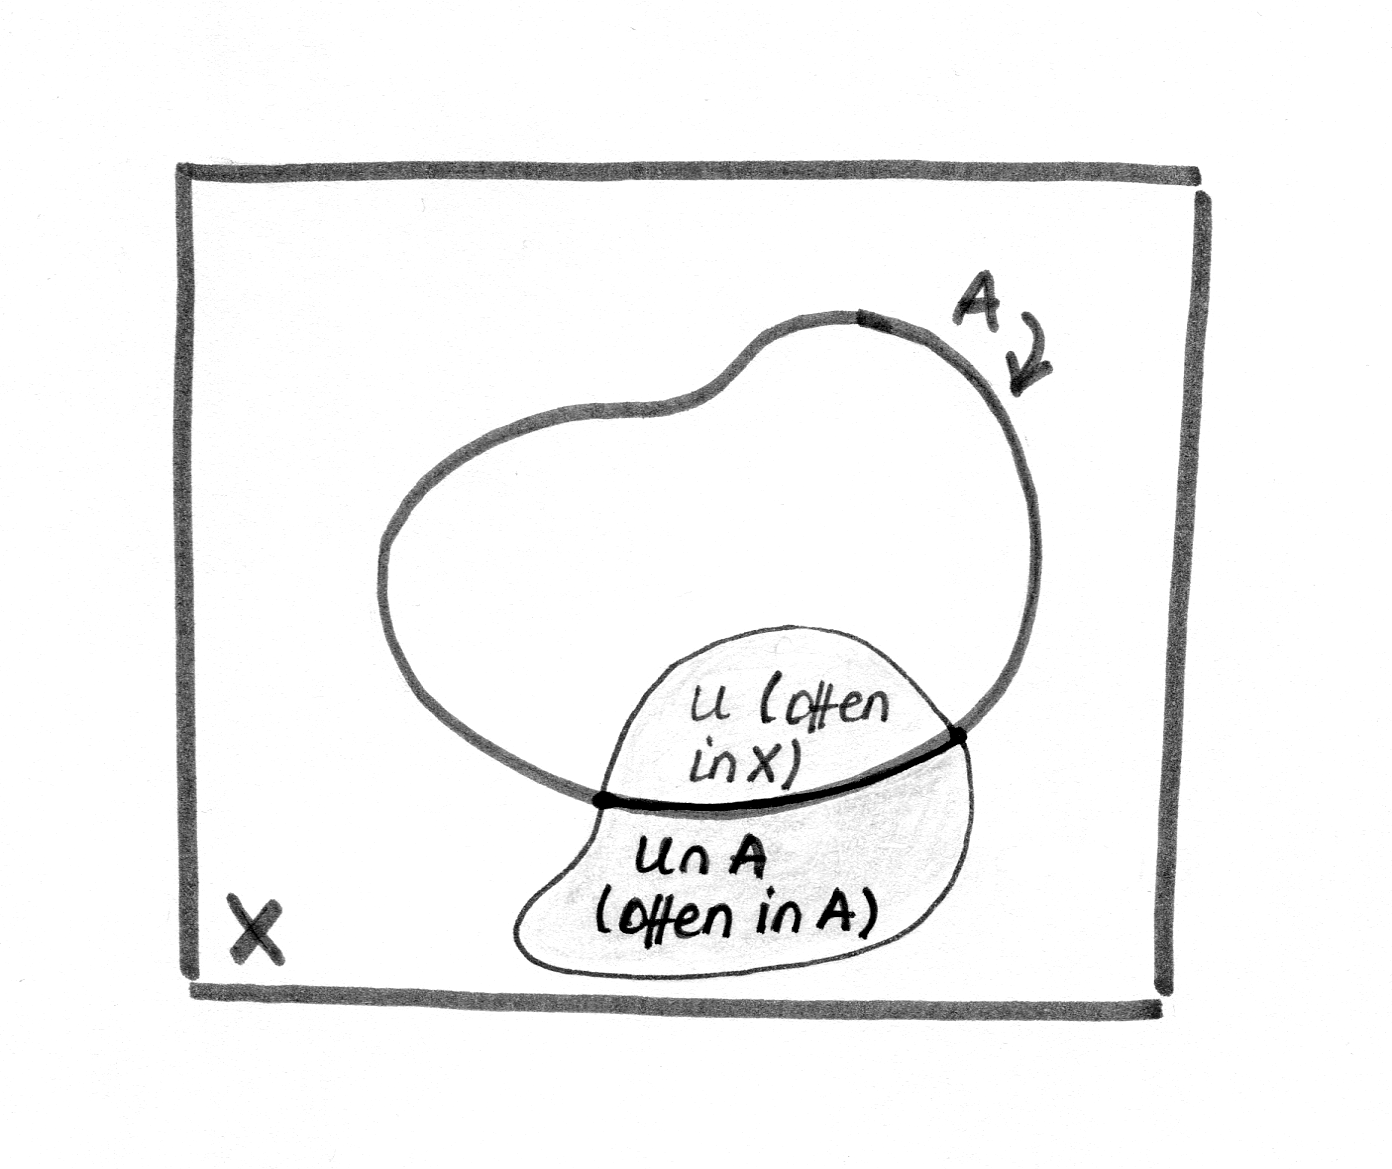 A
U (offen
in X)
U∩A
(offen in A)
X